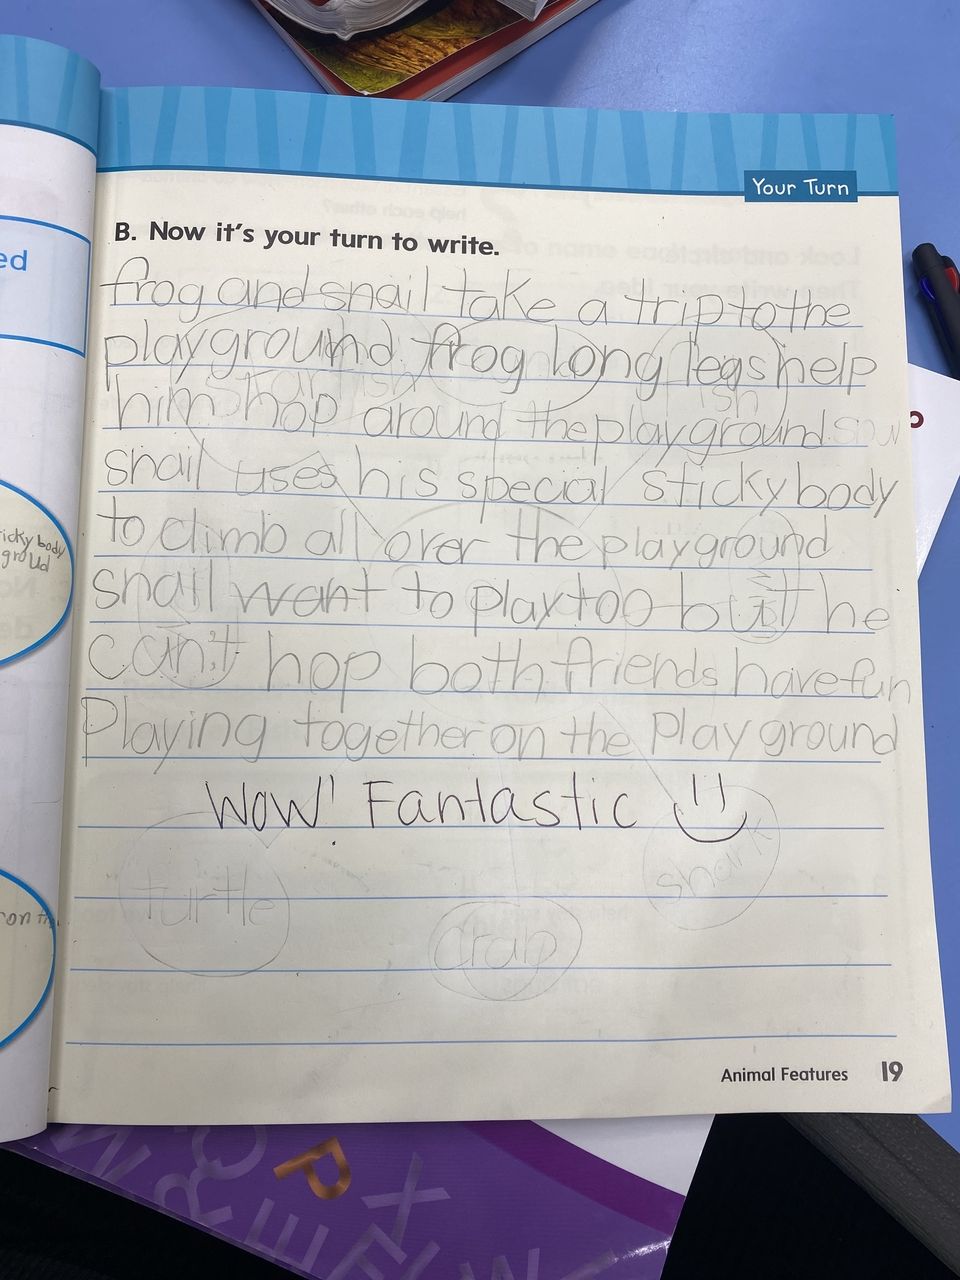 Your Turn
B. Now it's your turn to write.
frog and snail take a trip to the
playground frog long legs help
him hop around the playground
snail uses his special sticky body
to climb all over the playground
snail want to play too but he
can't hop both friends have fun
Playing together on the Playground
Wow! Fantastic
turtle
shark
crab
Animal Features 19
ed
icky body
groud
on
P